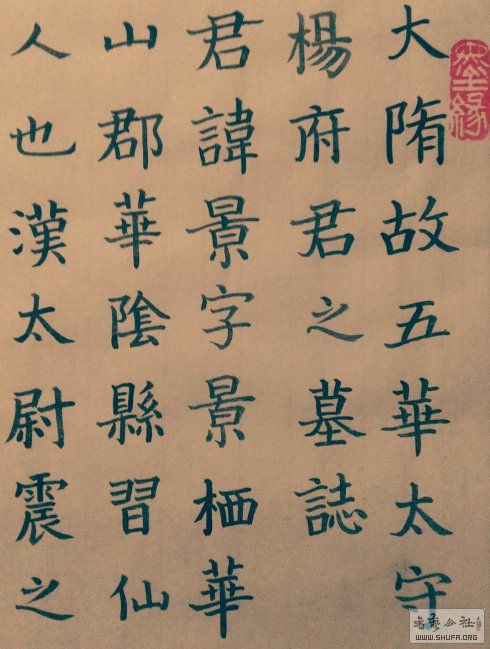 大隋故五華太守
楊府君之墓誌
君諱景字景栖華
山郡華陰縣習仙
人也漢太尉震之
墨緣
书艺公社
WWW.SHUFA.ORG